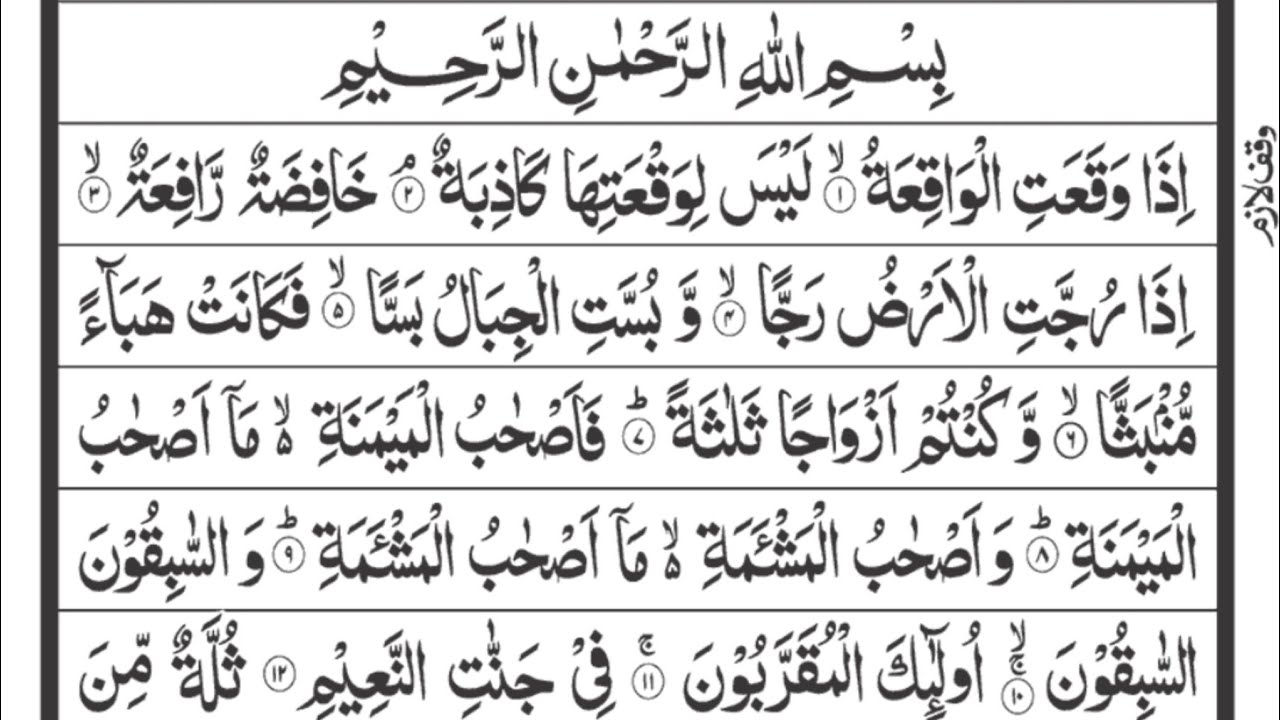 بِسْمِ اللهِ الرَّحْمٰنِ الرَّحِيْمِ
اِذَا وَقَعَتِ الْوَاقِعَةُ ۙ﴿۱﴾ لَيْسَ لِوَقْعَتِهَا كَاذِبَةٌ ۘ﴿۲﴾ خَافِضَةٌ رَّافِعَةٌ ۙ﴿۳﴾
وقف لازم
اِذَا رُجَّتِ الْاَرْضُ رَجًّا ۙ﴿۴﴾ وَّ بُسَّتِ الْجِبَالُ بَسًّا ۙ﴿۵﴾ فَكَانَتْ هَبَآءً
مُّنْۢبَثًّا ۙ﴿۶﴾ وَّ كُنْتُمْ اَزْوَاجًا ثَلٰثَةً ؕ﴿۷﴾ فَاَصْحٰبُ الْمَيْمَنَةِ ۙ۬ مَاۤ اَصْحٰبُ
الْمَيْمَنَةِ ؕ﴿۸﴾ وَ اَصْحٰبُ الْمَشْـَٔمَةِ ۙ۬ مَاۤ اَصْحٰبُ الْمَشْـَٔمَةِ ؕ﴿۹﴾ وَ السّٰبِقُوْنَ
السّٰبِقُوْنَ ۚۙ﴿۱۰﴾ اُولٰٓئِكَ الْمُقَرَّبُوْنَ ۚ﴿۱۱﴾ فِیْ جَنّٰتِ النَّعِيْمِ ﴿۱۲﴾ ثُلَّةٌ مِّنَ